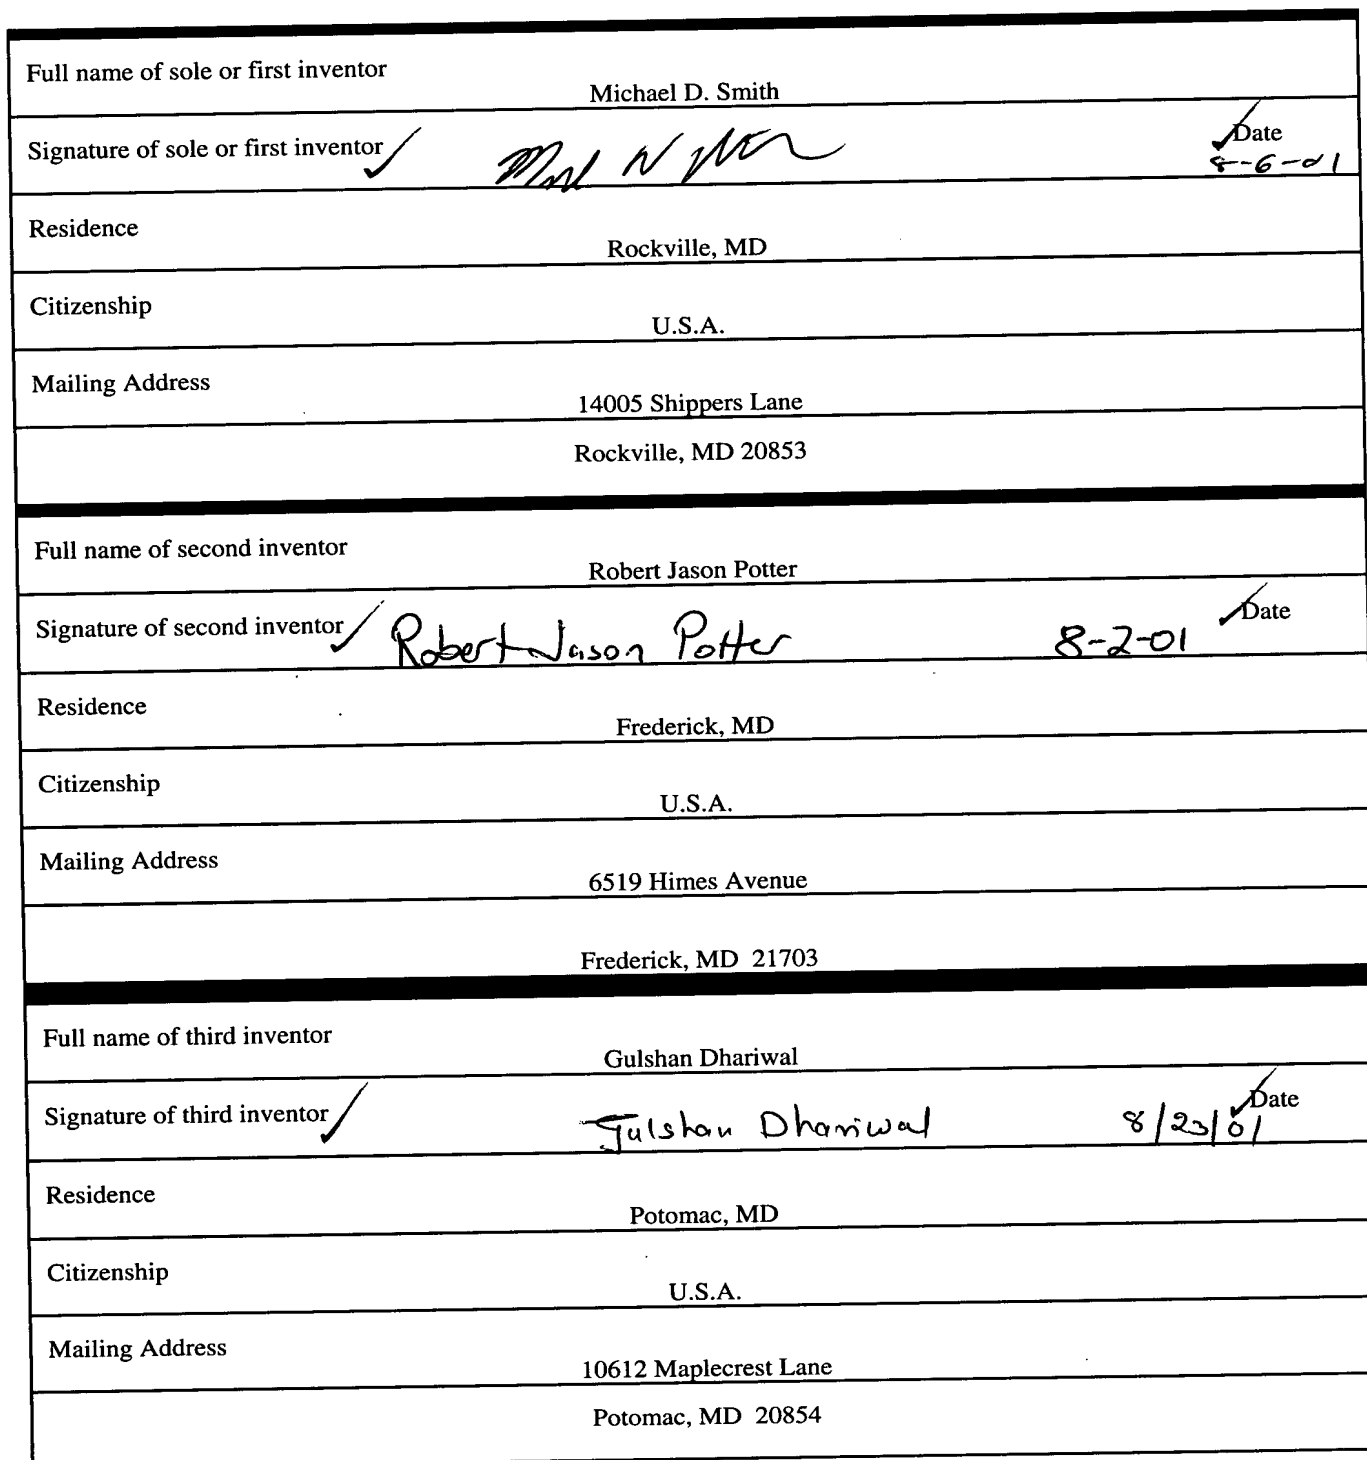 Full name of sole or first inventor
Michael D. Smith
Signature of sole or first inventor
Date
8-6-01
Residence
Rockville, MD
Citizenship
U.S.A.
Mailing Address
14005 Shippers Lane
Rockville, MD 20853
Full name of second inventor
Robert Jason Potter
Signature of second inventor Robert Jason Potter 8-2-01 Date
Residence
Frederick, MD
Citizenship
U.S.A.
Mailing Address
6519 Himes Avenue
Frederick, MD 21703
Full name of third inventor
Gulshan Dhariwal
Signature of third inventor Gulshan Dhariwal 8/23/01 Date
Residence
Potomac, MD
Citizenship
U.S.A.
Mailing Address
10612 Maplecrest Lane
Potomac, MD 20854